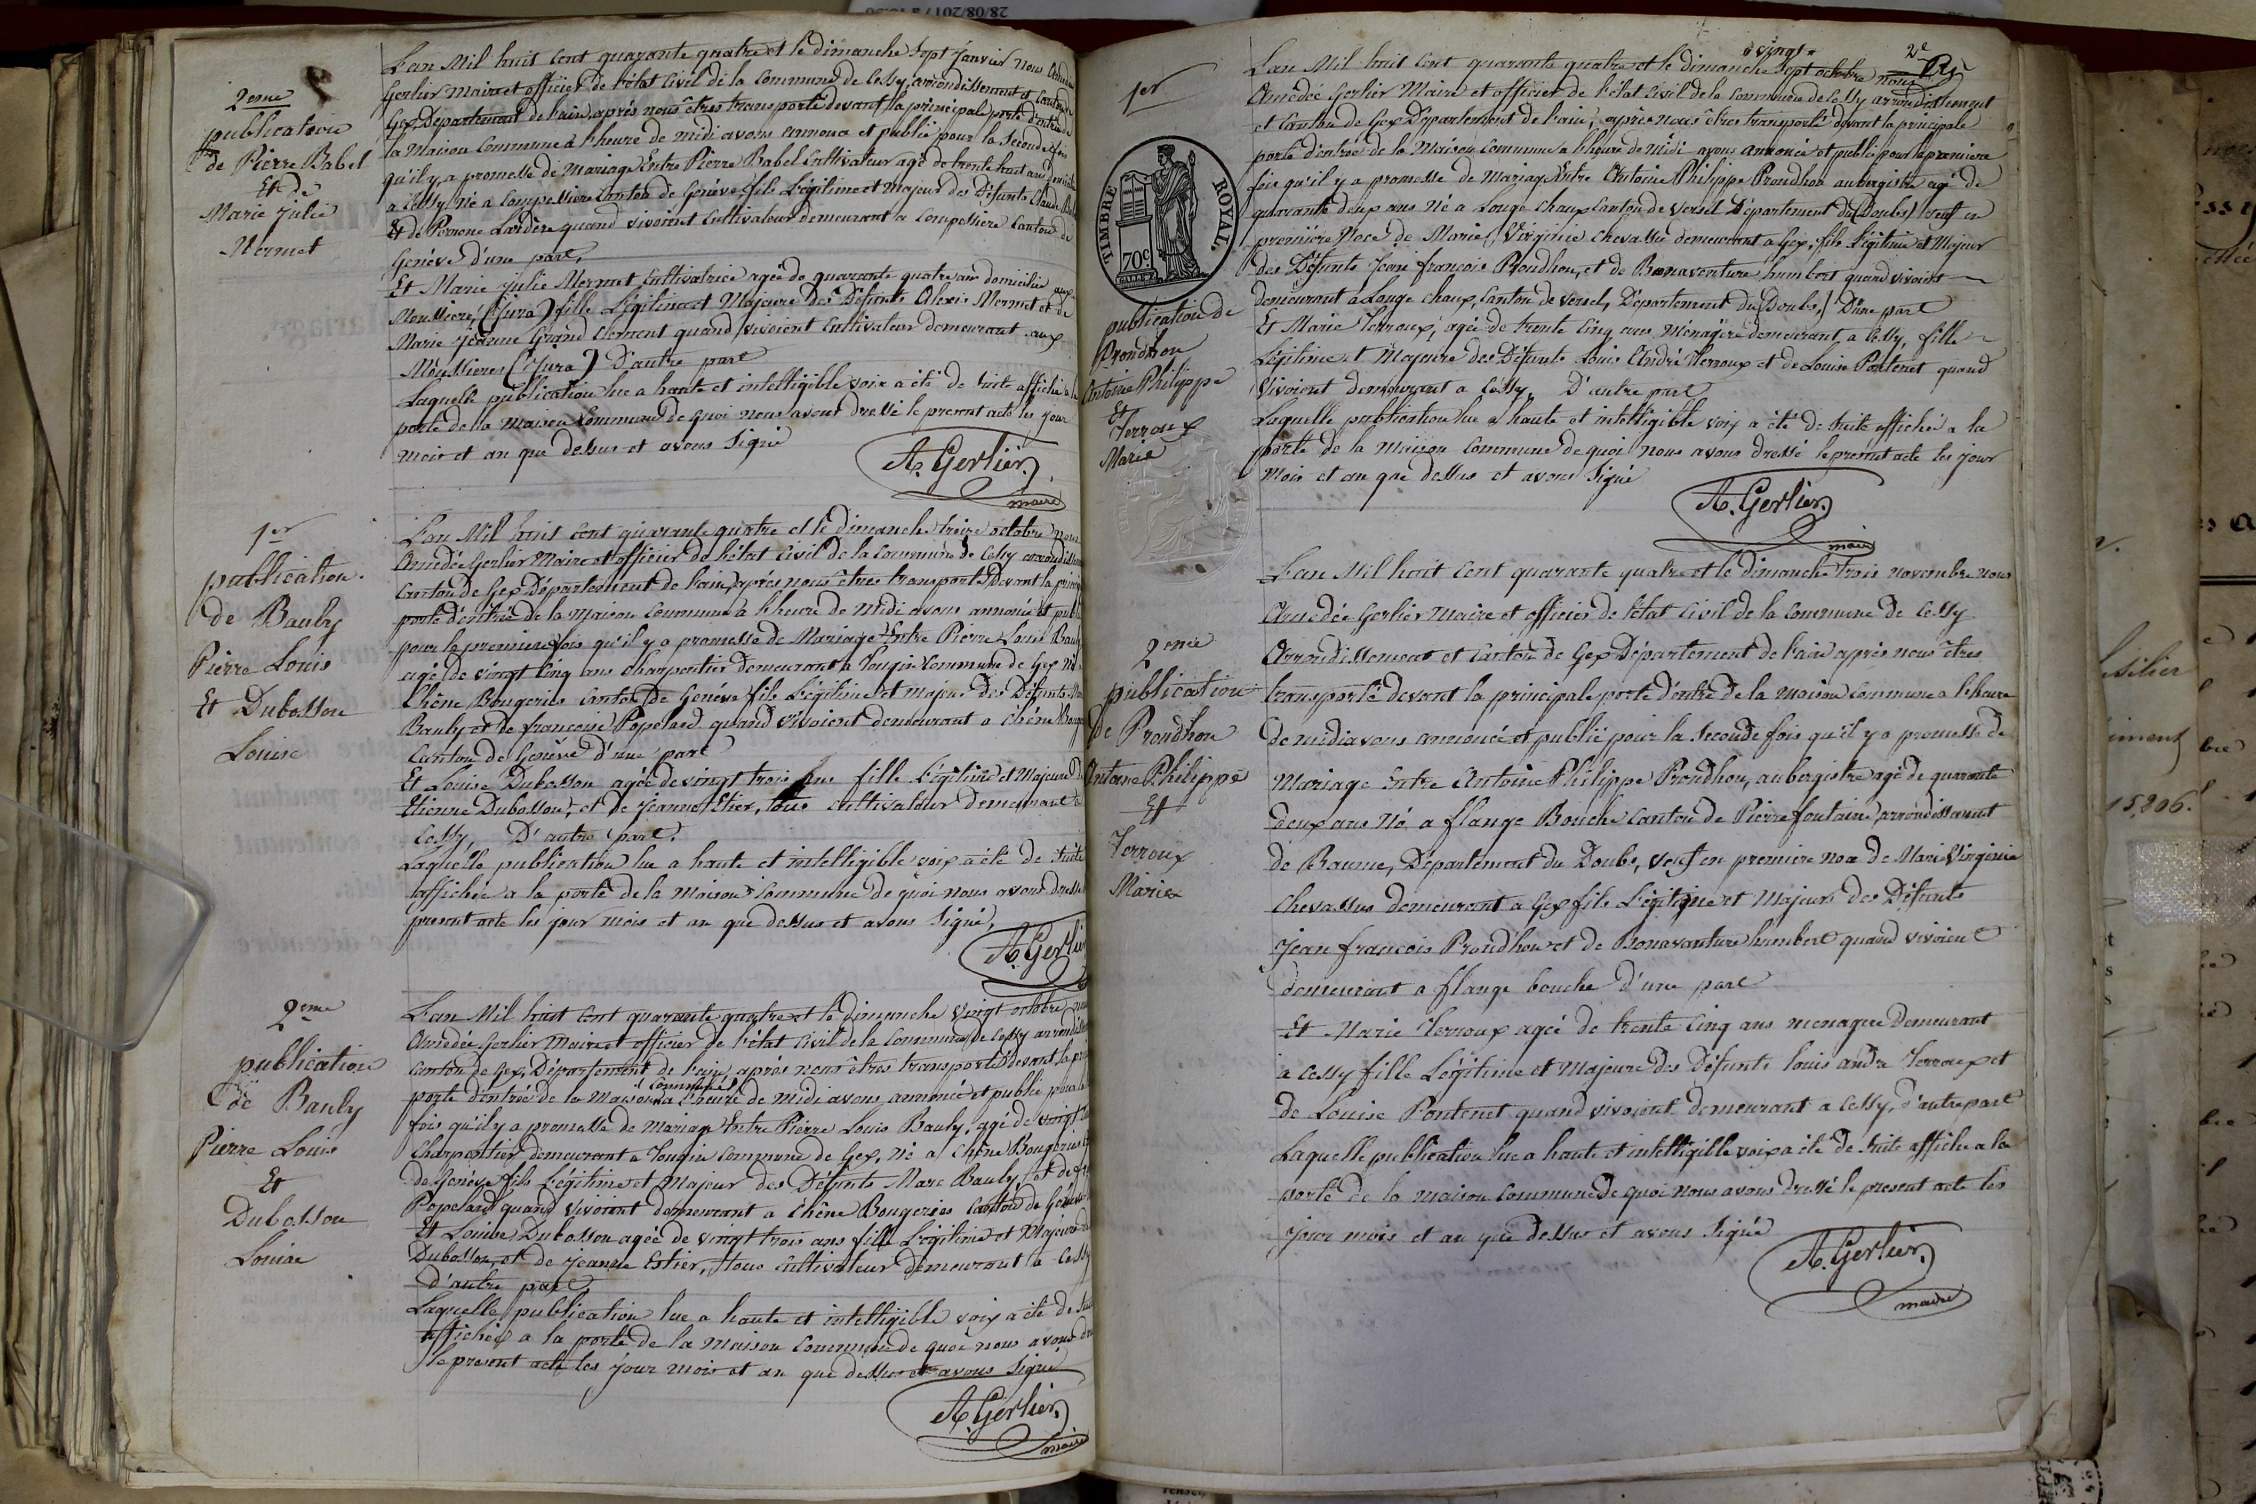 28/08/2017
2eme
publication
de Pierre Babel
Et de
Marie Julie
Mermet
L'an Mil huit Cent quarante quatre et le dimanche Sept Janvier nous
Gerlier Maire et officier de l'état Civil de la Commune de Cessy, arrondissement et Canton de
Gex, Département de l'ain, après nous êtres transporté devant la principale porte d'entrée de
la Maison Commune à l'heure de midi avons annoncé et publié pour la Seconde fois
qu'il y a promesse de mariage Entre Pierre Babel Cultivateur agé de trente huit ans
a Cessy, Né à Compessière Canton de Genève fils Légitime et Majeur des Défunts Claude
Et de Pernone Lardère quand vivoient Cultivateur demeurant a Compesière Canton de
Genève d'une part,
Et Marie Julie Mermet Cultivatrice agée de quarante quatre ans domicilié aux
Moussiere, (Jura) fille Légitime et Majeure des Défunts Alexis Mermet et de
Marie Jeanne Grand Clement quand vivoient Cultivateur demeurant aux
Moussieres (Jura) D'autre part
Laquelle publication lue a haute et intelligible voix a été de suite affichée a la
porte de la maison Commune de quoi nous avons dressé le present acte les jour
mois et an que dessus et avons Signé
A. Gerlier.
maire
1er
publication
de Bauly
Pierre Louis
Et Dubosson
Louise
L'an Mil huit Cent quarante quatre et le Dimanche treize octobre nous
Amedée Gerlier Maire et officier de l'état Civil de la Commune de Cessy
Canton de Gex Département de l'ain, après nous êtres transporté devant la
porte d'entrée de la Maison Commune à l'heure de Midi avons annoncé et
pour la premiere fois qu'il y a promesse de Mariage Entre Pierre Louis
agé de vingt Cinq ans Charpentier demeurant a Tougin Commune de Gex Né
Chêne Bougeries Canton de Genève fils Légitime et majeur des Défunts
Bauly et de françoise Popelard quand vivoient demeurant a Chêne
Canton de Genève d'une part
Et Louise Dubosson agée de vingt trois ans fille Légitime et Majeure
Etienne Dubosson, et de Jeanne Etier, tous Cultivateur demeurant
Cessy, D'autre part.
Laquelle publication lue a haute et intelligible voix a été de suite
affichée a la porte de la maison Commune de quoi nous avons dressé
present acte les jour mois et an que dessus et avons Signé,
A. Gerlier
2eme
publication
de Bauly
Pierre Louis
Et
Dubosson
Louise
L'an Mil huit Cent quarante quatre et le Dimanche vingt octobre
Amedée Gerlier Maire et officier de l'état Civil de la Commune de Cessy
Canton de Gex, Département de l'ain, après nous êtres transporté devant la
Commune
porte d'entrée de la Maison a l'heure de midi avons annoncé et publié pour la
fois qu'il y a promesse de Mariage Entre Pierre Louis Bauly, agé de vingt
Charpentier demeurant a Tougin Commune de Gex, Né a Chêne Bougeries
de Genève fils Légitime et Majeur des Défunts Marc Bauly, et de
Popelard quand vivoient demeurant a Chêne Bougeries Canton de Genève
Et Louise Dubosson agée de vingt trois ans fille Légitime et Majeure
Dubosson, et de Jeanne Estier, tous Cultivateur demeurant a Cessy
D'autre part
Laquelle publication lue a haute et intelligible voix a été de
affichée a la porte de la Maison Commune de quoi nous avons
le present acte les jour mois et an que dessus et avons Signé
A. Gerlier.
maire
1er
TIMBRE ROYAL.
70c
publication de
Prondhon
Antoine Philippe
Et
Verroux
Marie
2e
vingt
L'an Mil huit Cent quarante quatre et le dimanche Sept octobre nous
Amedée Gerlier Maire et officier de l'état Civil de la Commune de Cessy arrondissement
et Canton de Gex Département de l'ain, après nous êtres transporté devant la principale
porte d'entrée de la Maison Commune a l'heure de Midi avons annoncé et publié pour la premiere
fois qu'il y a promesse de Mariage Entre Antoine Philippe Prondhon aubergiste agé de
quarante deux ans Né a Longe Chaux Canton de Versel Département du (Doubs) Veuf en
premiére Noce de Marie Virginie Chevassu demeurant a Gex, fils Légitime et Majeur
des Défunts Jean françois Prondhon, et de Bonaventure humbert quand vivoient
demeurant á Longe chaux, Canton de Versel, Département du (Doubs,) D'une part
Et Marie Verroux, agée de trente Cinq ans Ménagère demeurant, a Cessy, fille
Légitime et Majeure des Défunts Louis André Verroux et de Louise Pontenet quand
Vivoient demeurant a Cessy, D'autre part
Laquelle publication lue a haute et intelligible voix a été de suite affichée a la
porte de la Maison Commune de quoi nous avons dressé le present acte les jour
Mois et an que dessus et avons Signé
A. Gerlier.
maire
2emé
publication
de Prondhon
Antoine Philippe
Et
Verroux
Marie
L'an Mil huit Cent quarante quatre et le dimanche trois novembre nous
Amedée Gerlier Maire et officier de l'état Civil de la Commune de Cessy
Arrondissement et Canton de Gex Département de l'ain après nous êtres
transporté devant la principale porte d'entré de la Maison Commune a l'heure
de midi avons annoncé et publié pour la Seconde fois qu'il y a promesse de
Mariage Entre Antoine Philippe Prondhon, aubergistre agé de quarante
deux ans Né a flange Bouche Canton de Pierrefontaine, arrondissement
de Baume, Département du Doubs, Veuf en premiere noce de Marie Virginie
Chevassus demeurant a Gex fils Légitime et Majeurs des Défunts
Jean françois Prondhon et de Bonavanture humbert quand vivoient
demeurant a flange bouche d'une part
Et Marie Verroux agée de trente Cinq ans menagere demeurant
a Cessy fille Légitime et Majeure des Défunts louis andre Verroux et
de Louise Pontenet quand vivoient demeurant a Cessy, d'autre part
Laquelle publication lue a haute et intelligille voix a été de suite affiche a la
porte de la maison Commune de quoi nous avons dressé le present acte les
jour mois et an que dessus et avons Signé
A. Gerlier.
maire
15,206.